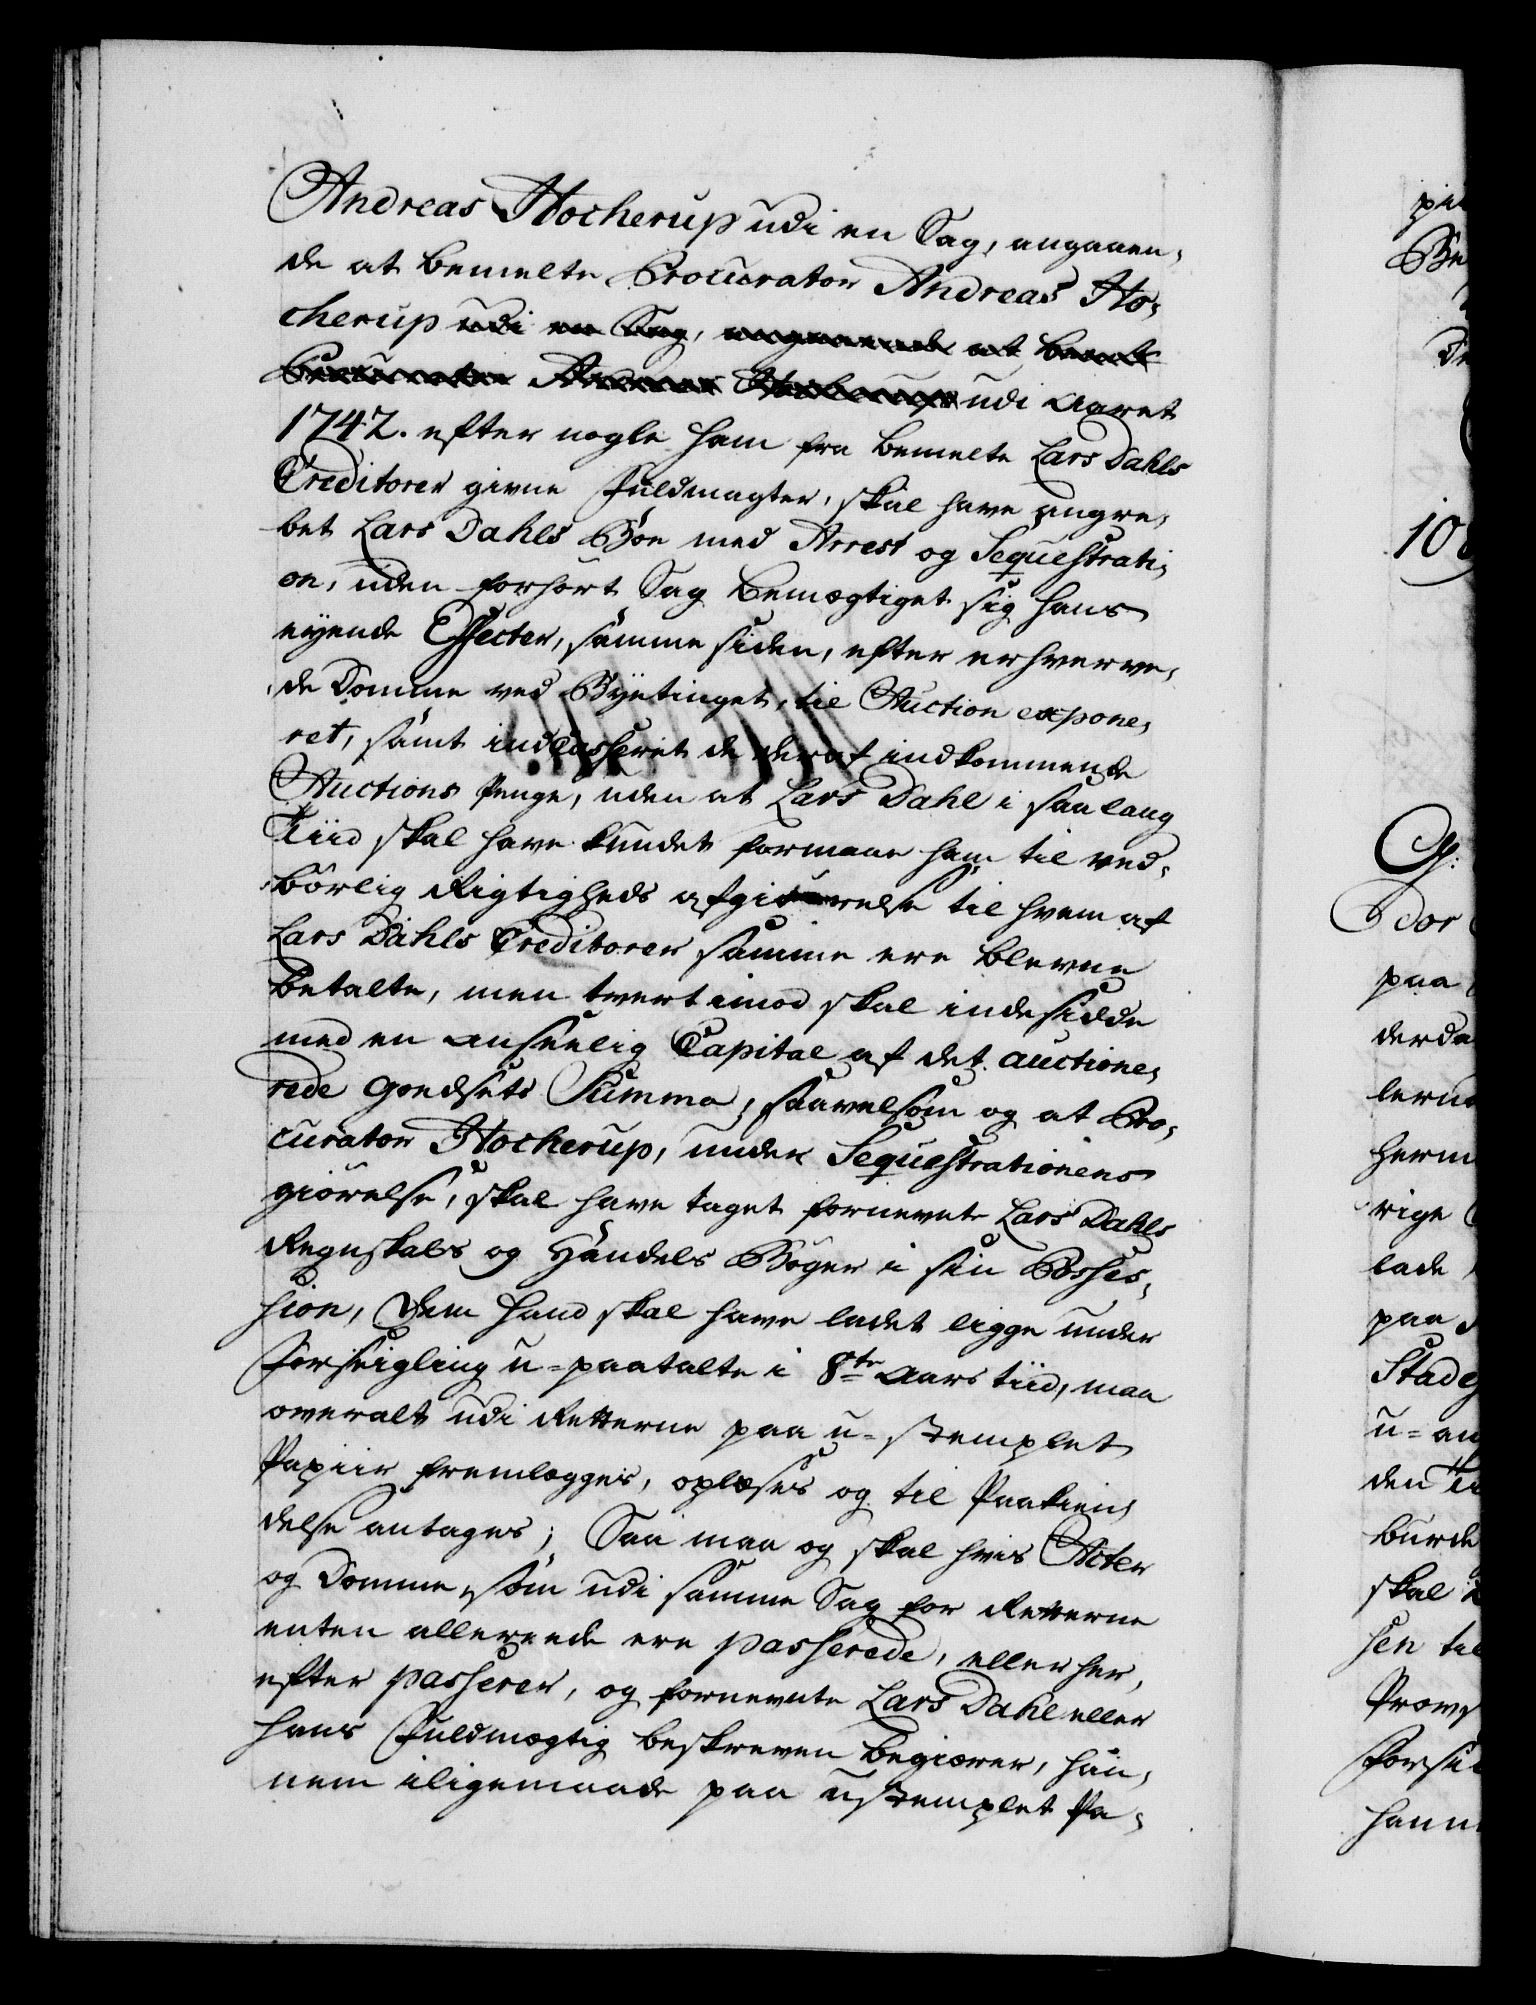 Andreas Hocherup udi en Sag, angaaen-
de at bemelte Procurator Andreas Ho-
cherup udi en Sag, angaaende at bemte
Procurator Andreas Hocherup udi Aaret
1742. efter nogle ham fra bemelte Lars Dahls
Creditorer givne Fuldmagter, skal have angre-
bet Lars Dahls Boe med Arrest og Sequestrati-
on, uden forhört Sag bemægtiget sig hans
eyende Effecter, samme siden, efter erhverve-
de Domme ved Byetinget, til Auction expone-
ret, samt indcasseret de deraf indkommende
Auctions Penge, uden at Lars Dahl i saa lang
Tiid skal have kundet formaae ham til ved-
börlig Rigtigheds afgiörelse til hvem af
Lars Dahls Creditorer samme ere blevne
betalte, men tvert imod skal indesidde
med en anseelig Capital af det auctione-
rede Goedsets Summa, saavelsom og at Pro-
curator Hocherup, under Sequestrationens
giörelse, skal have taget fornevnte Lars Dahls
Regnskabs og Handels Böger i sin Posses-
sion, dem hand skal have ladet ligge under
Forseigling u-paatalte i 8te Aars tiid, maa
overalt udi Retterne paa u-stemplet
Papiir fremlægges, oplæses og til Paakien-
delse antages; Saa maa og skal hvis Acter
og Domme, som udi samme Sag for Retterne
enten allereede ere passerede, eller her-
efter passerer, og fornevnte Lars Dahl eller
hans Fuldmægtig beskreven begiærer, han-
nem iligemaade paa ustemplet Pa-